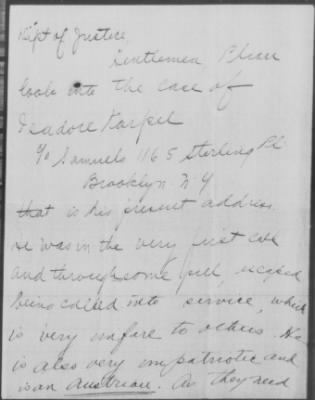 Dept of Justice,
Gentlemen, Please
look into the case of
Isadore Karpel
c/o Samuels 1165 Sterling Pl
Brooklyn N Y
that is his present address
he was in the very first
and through some pull, escaped
being called into service, which
is very unfare to others. He
is also very unpatriotic and
is an Austrian. As they need